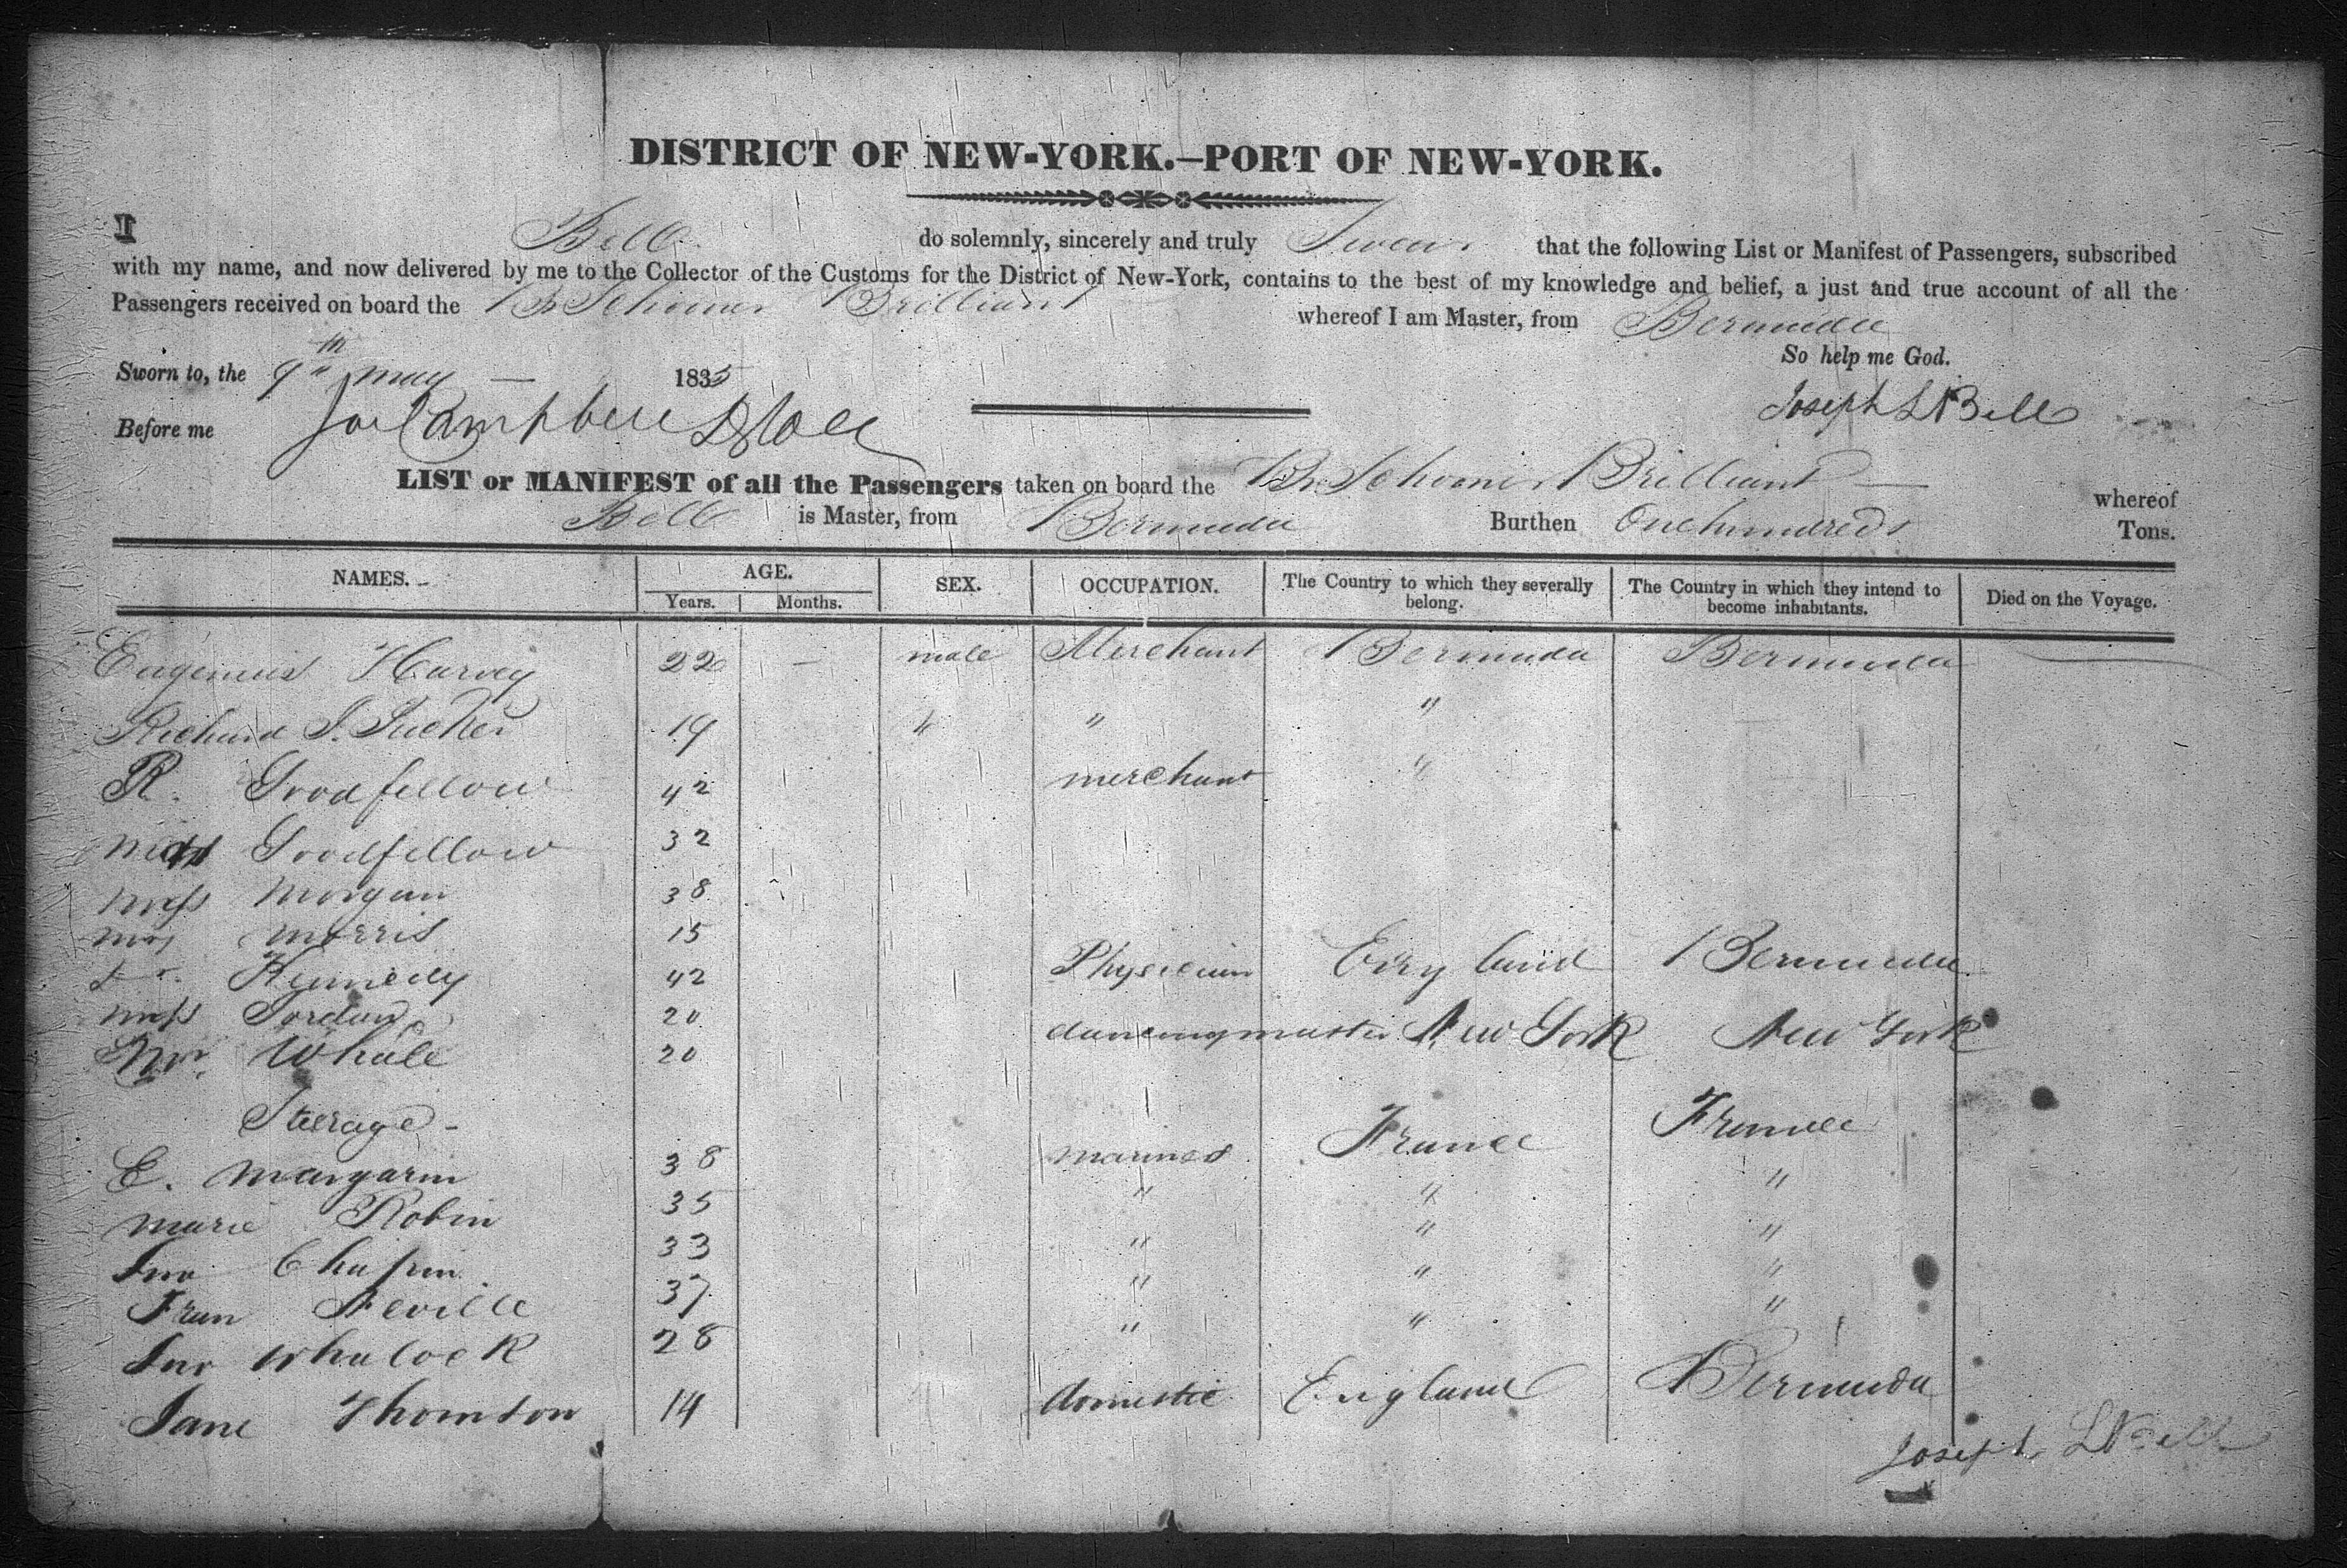 DISTRICT OF NEW-YORK.—PORT OF NEW-YORK.
I Bell do solemnly, sincerely and truly Swear that the following List or Manifest of Passengers, subscribed
with my name, and now delivered by me to the Collector of the Customs for the District of New-York, contains to the best of my knowledge and belief, a just and true account of all the
Passengers received on board the Br Schooner Brilliant whereof I am Master, from Bermuda
So help me God.
Sworn to, the 9th may — 1835
Joseph L Bell
Before me Campbell
LIST or MANIFEST of all the Passengers taken on board the Br. Schooner Brilliant — whereof
Bell is Master, from Bermuda Burthen One hundred Tons.
NAMES. AGE. SEX. OCCUPATION. The Country to which they severally belong. The Country in which they intend to become inhabitants. Died on the Voyage.
Years. Months.
Eugenius Harvey 22 — male Merchant Bermuda Bermuda
Richard J. Tucker 19 " " "
R. Goodfellow 42 merchant "
Goodfellow 32
miss Morgan 38
morris 15
Kennedy 42 Physician England Bermuda
miss 20
Mr. Whale 20 dancing master New York New York
Steerage -
E. Margarin 38 marines France France
marie Robin 35 " " "
Jno Chapin 33 " " "
Fran Neville 37 " " "
Jno Whalock 28 " " "
Jane Thomson 14 domestic England Bermuda
Joseph L Bell